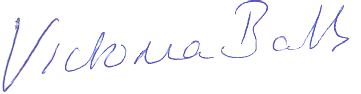 Victoria Balls